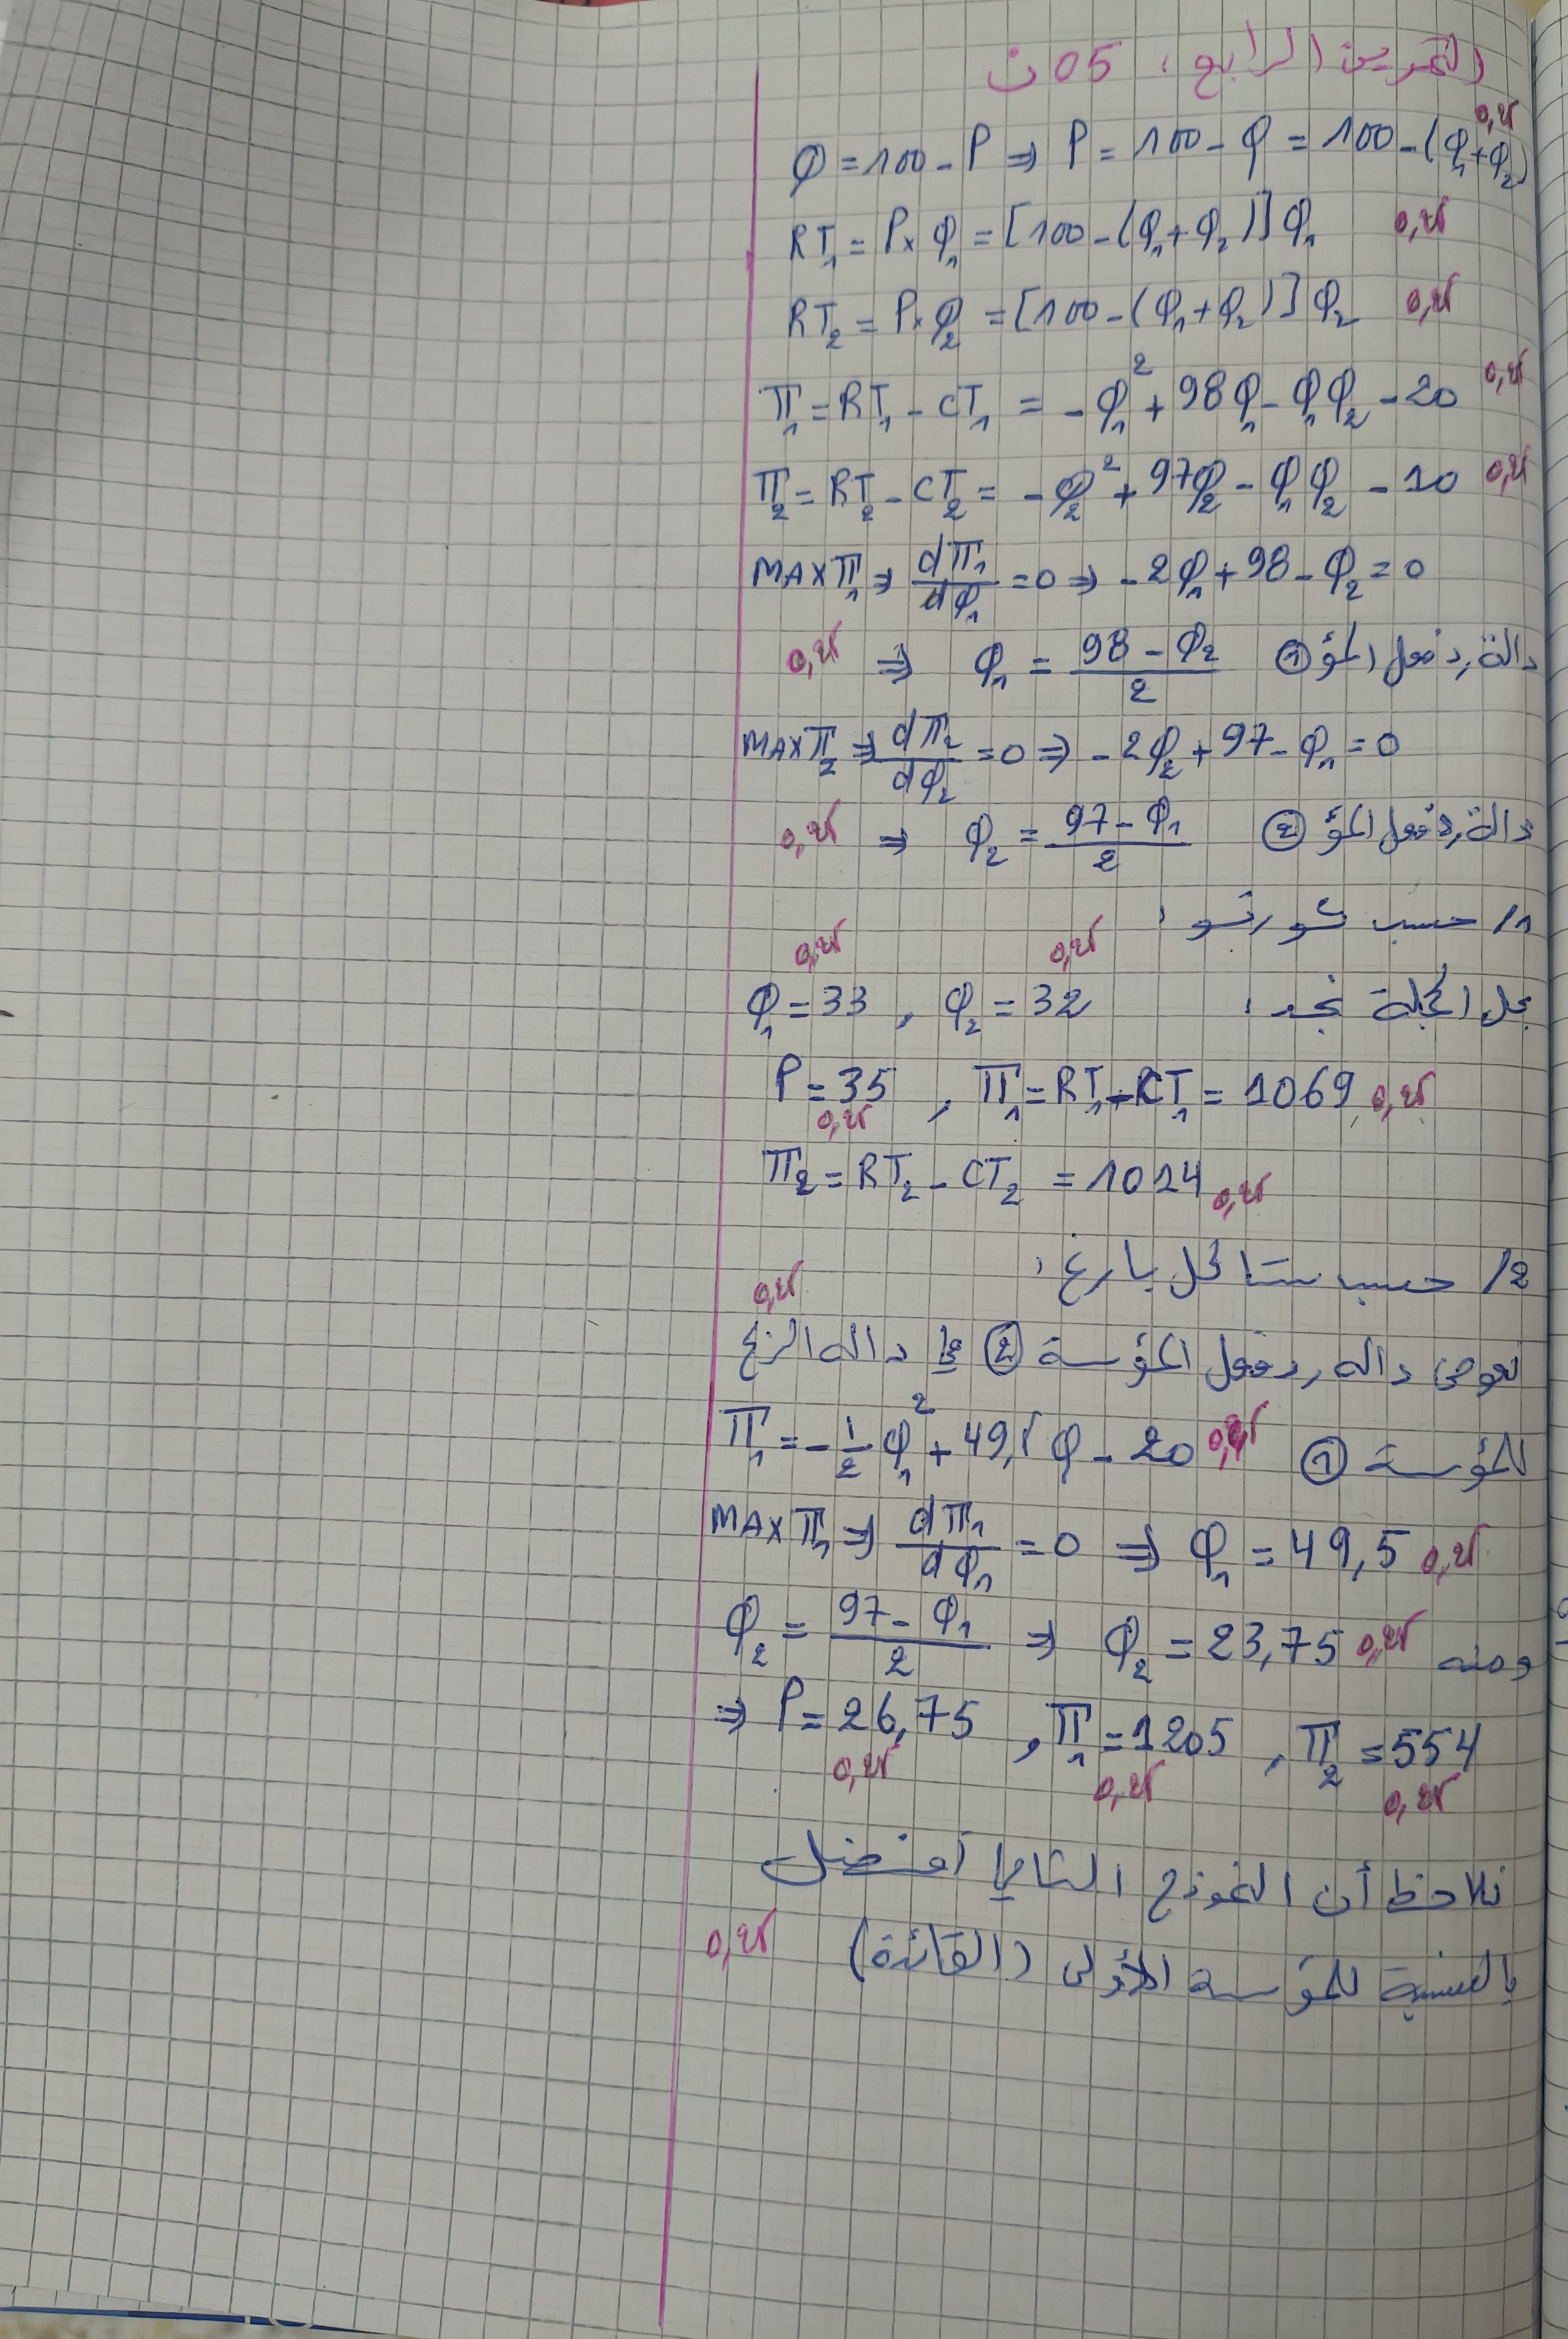 التمرين الرابع: 05 ن
Q = 100 - P ⇒ P = 100 - Q = 100 - (Q₁+Q₂) 0,25
RT₁ = P × Q₁ = [100 - (Q₁+Q₂)] Q₁ 0,25
RT₂ = P × Q₂ = [100 - (Q₁+Q₂)] Q₂ 0,25
π₁ = RT₁ - CT₁ = -Q₁² + 98Q₁ - Q₁Q₂ - 20 0,25
π₂ = RT₂ - CT₂ = -Q₂² + 97Q₂ - Q₁Q₂ - 10 0,25
MAX π₁ ⇒ dπ₁/dQ₁ = 0 ⇒ -2Q₁ + 98 - Q₂ = 0
0,25 ⇒ Q₁ = (98 - Q₂)/2 دالة رد فعل المؤ ①
MAX π₂ ⇒ dπ₂/dQ₂ = 0 ⇒ -2Q₂ + 97 - Q₁ = 0
0,25 ⇒ Q₂ = (97 - Q₁)/2 دالة رد فعل المؤ ②
1/ حسب كورنو:
بحل الجملة نجد: Q₁ = 33 0,25 , Q₂ = 32 0,25
P = 35 0,25 , π₁ = RT₁ - CT₁ = 1069 0,25
π₂ = RT₂ - CT₂ = 1014 0,25
2/ حسب ستاكل بارغ:
نعوض دالة رد فعل المؤسسة ② في دالة الربح 0,25
للمؤسسة ① π₁ = -1/2 Q₁² + 49,5 Q - 20 0,25
MAX π₁ ⇒ dπ₁/dQ₁ = 0 ⇒ Q₁ = 49,5 0,25
ومنه Q₂ = (97 - Q₁)/2 ⇒ Q₂ = 23,75 0,25
⇒ P = 26,75 0,25 , π₁ = 1205 0,25 , π₂ = 554 0,25
نلاحظ أن النموذج الثاني أفضل
بالنسبة للمؤسسة الأولى (القائدة) 0,25